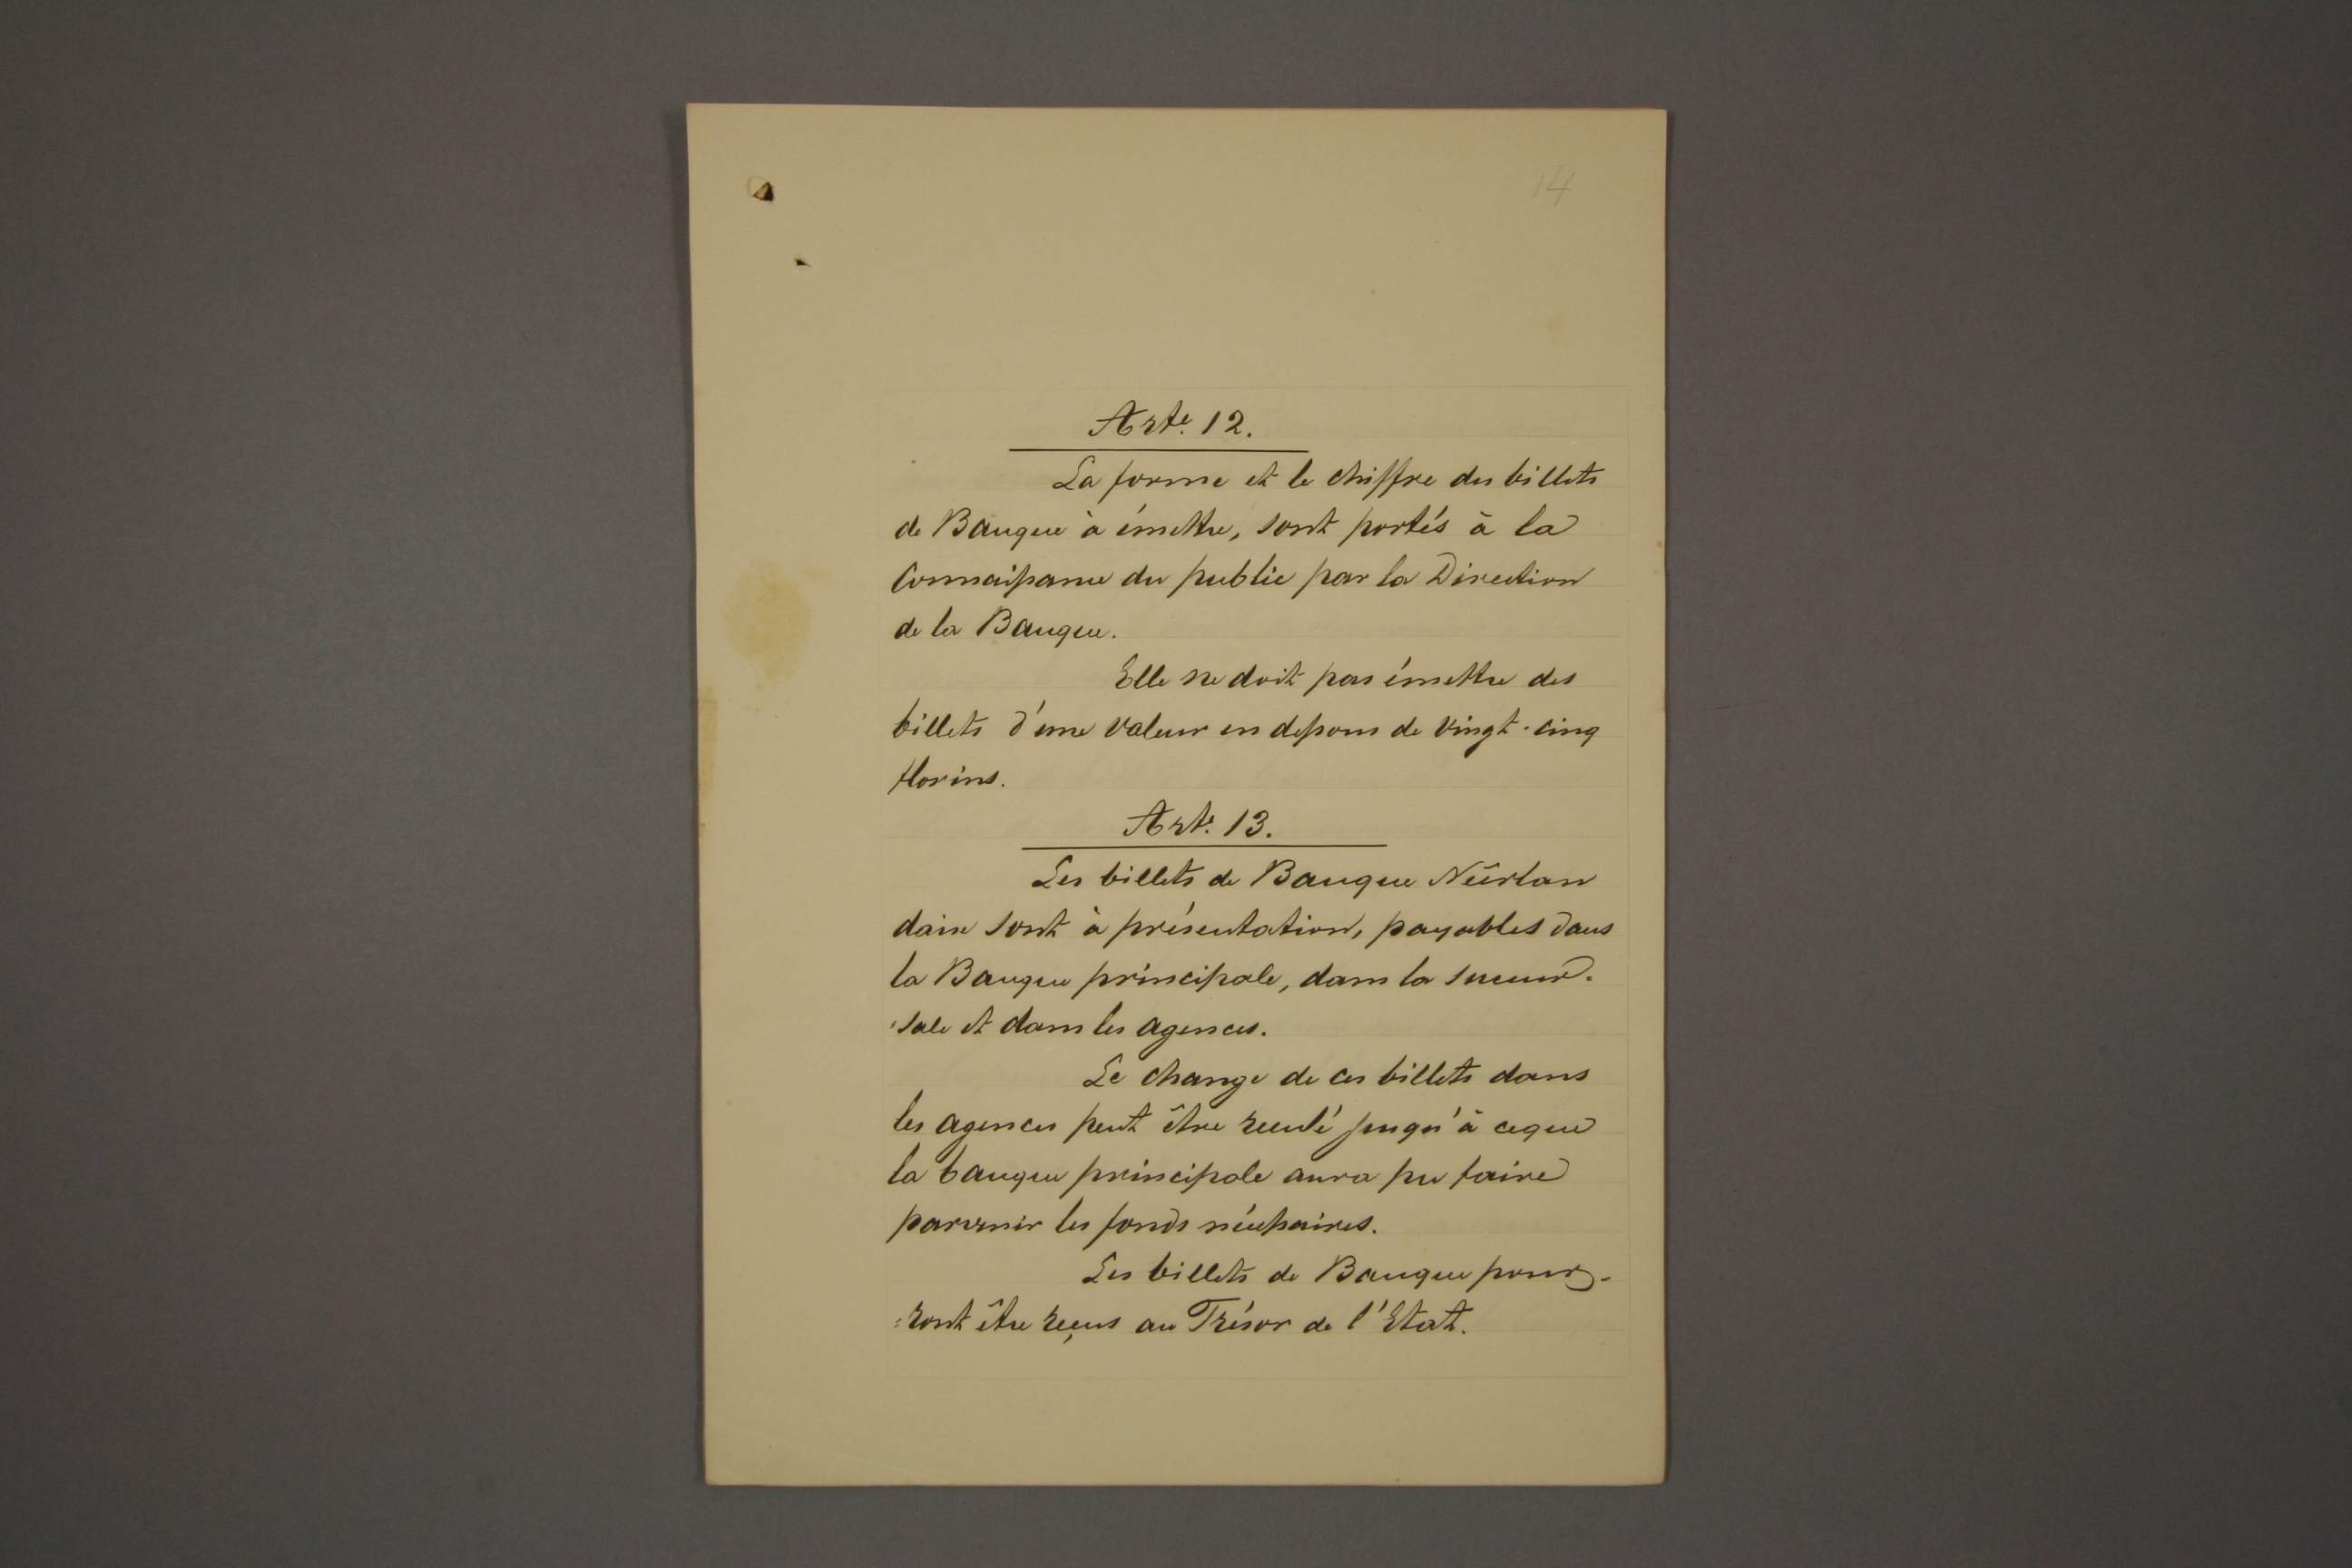 14
Arte. 12.
La forme et le chiffre des billets
de Banque à émettre, sont portés à la
Connaissance du public par la Direction
de la Banque.
Elle ne doit pas émettre des
billets d'une valeur en dessous de vingt-cinq
florins.
Arte. 13.
Les billets de Banque Néerlan
daise sont à présentation, payables dans
la Banque principale, dans la succur-
sale et dans les agences.
Le change de ces billets dans
les agences peut être reculé jusqu'à ceque
la banque principale aura pu faire
parvenir les fonds nécessaires.
Les billets de Banque pour-
=ront être reçus au Trésor de l'Etat.